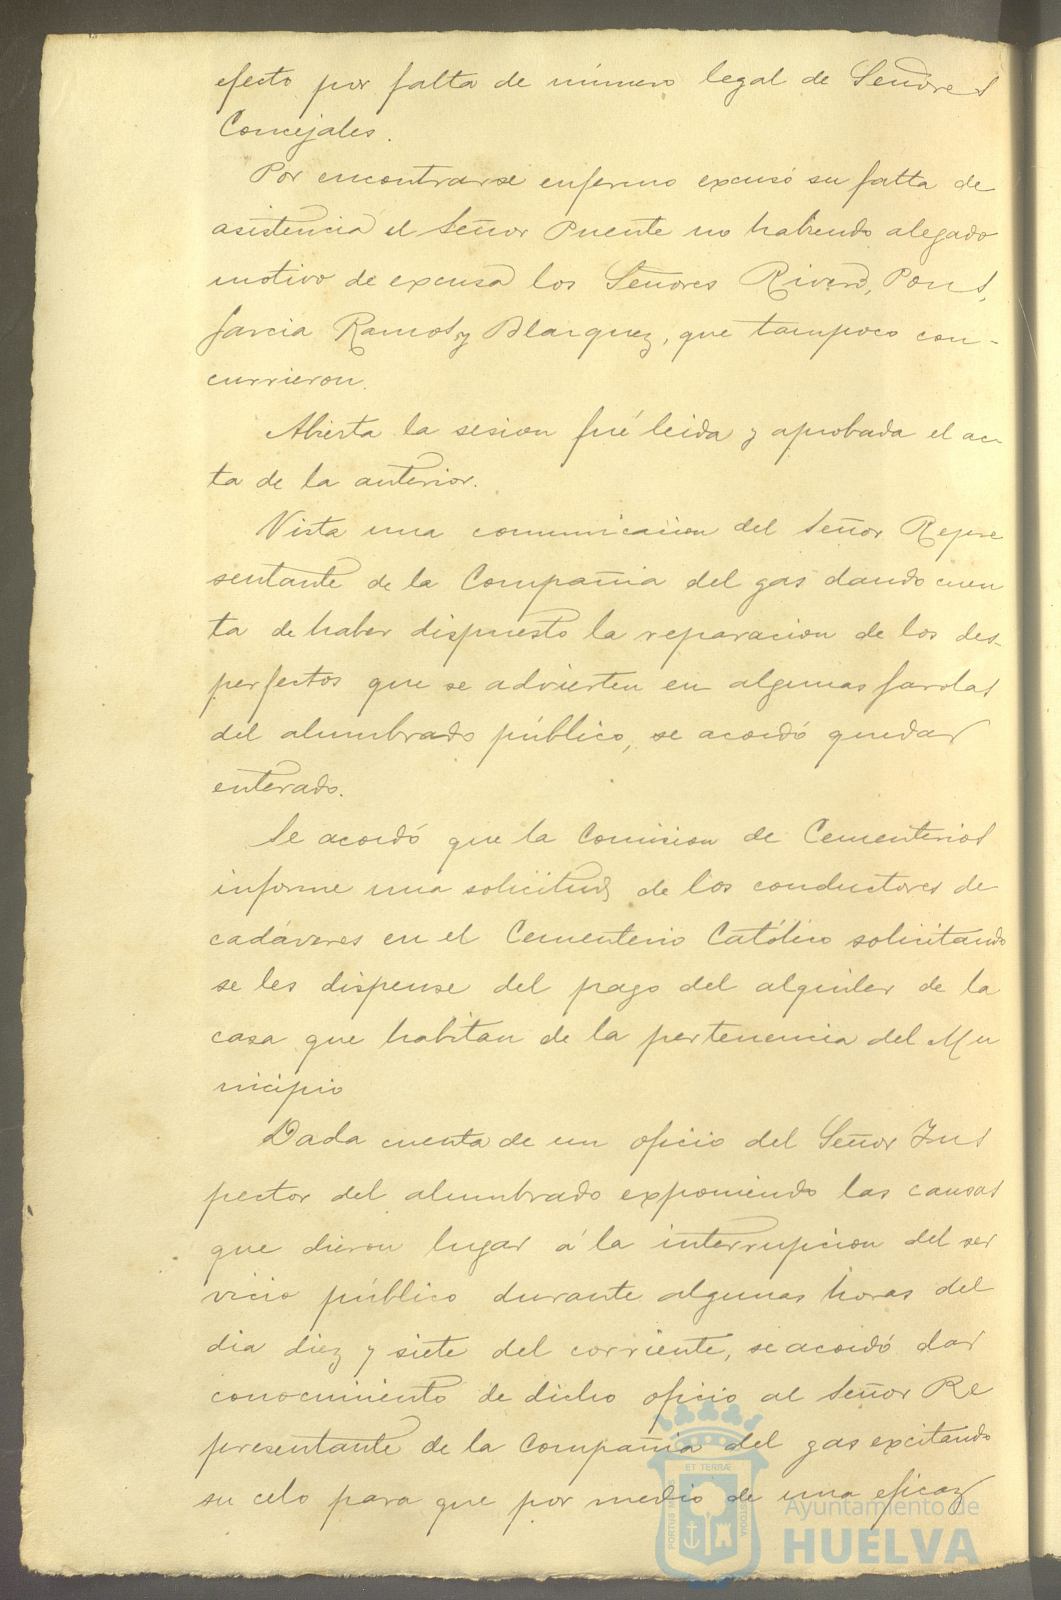 efecto por falta de número legal de Señores
Concejales.
Por encontrarse enfermo excusó su falta de
asistencia el Señor Puente no habiendo alegado
motivo de excusa los Señores Rivero, Pons,
Garcia Ramos y Blazquez, que tampoco con-
currieron.
Abierta la sesion fué leida y aprobada el ac
ta de la anterior.
Vista una comunicacion del Señor Repre
sentante de la Compañia del gas dando cuen
ta de haber dispuesto la reparacion de los des-
perfectos que se advierten en algunas farolas
del alumbrado público, se acordó quedar
enterado.
Se acordó que la Comision de Cementerios
informe una solicitud de los conductores de
cadáveres en el Cementerio Católico solicitando
se les dispense del pago del alquiler de la
casa que habitan de la pertenencia del Mu
nicipio
Dada cuenta de un oficio del Señor Ins
pector del alumbrado exponiendo las causas
que dieron lugar á la interrupcion del ser
vicio público durante algunas horas del
dia diez y siete del corriente, se acordó dar
conocimiento de dicho oficio al Señor Re
presentante de la Compañia del gas excitando
su celo para que por medio de una eficaz
ET TERRÆ
Ayuntamiento de
HUELVA